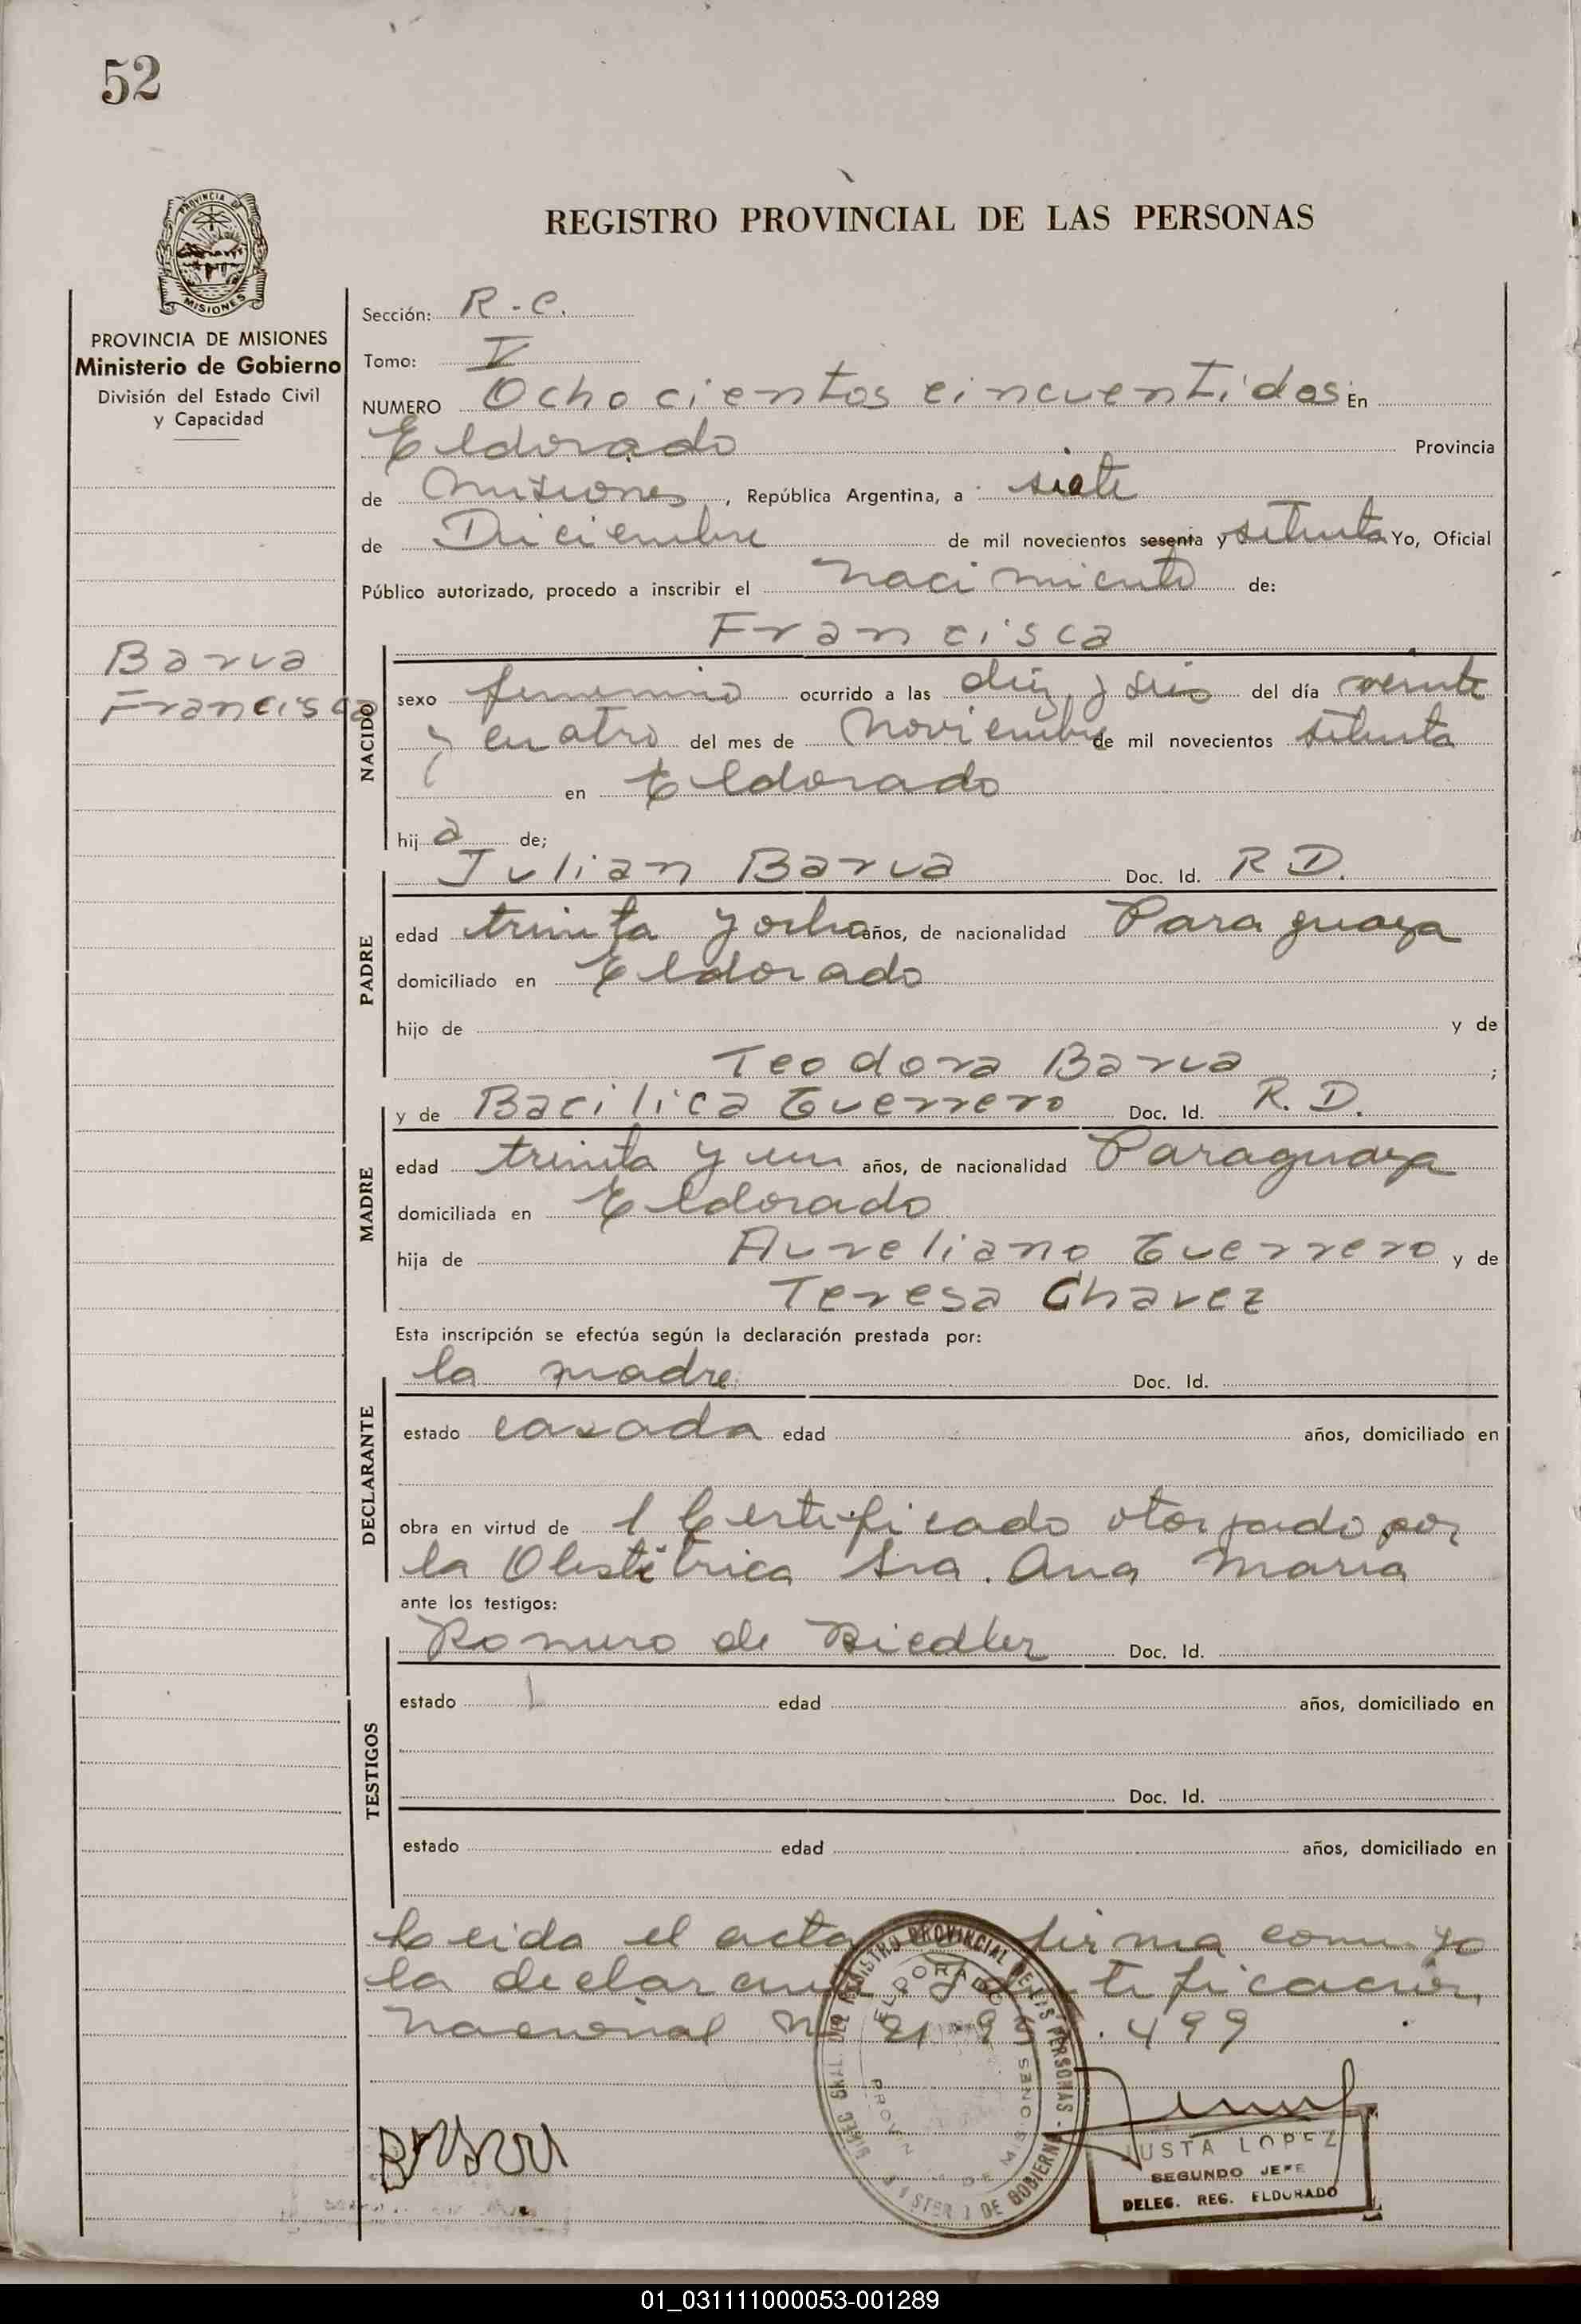 52
PROVINCIA DE
MISIONES
REGISTRO PROVINCIAL DE LAS PERSONAS
PROVINCIA DE MISIONES
Ministerio de Gobierno
División del Estado Civil
y Capacidad
Barva
Francisca
Sección: R.C.
Tomo: V
NUMERO Ochocientos cincuentidos En
Eldorado Provincia
de Misiones, República Argentina, a siete
de Diciembre de mil novecientos sesenta y setenta Yo, Oficial
Público autorizado, procedo a inscribir el nacimiento de:
Francisca
NACIDO
sexo femenino ocurrido a las diez y seis del día veinte
y cuatro del mes de Noviembre de mil novecientos setenta
en Eldorado
hij a de;
PADRE
Julian Barva Doc. Id. R.D.
edad treinta y ocho años, de nacionalidad Paraguaya
domiciliado en Eldorado
hijo de y de
Teodora Barva ;
MADRE
y de Bacilica Guerrero Doc. Id. R.D.
edad treinta y un años, de nacionalidad Paraguaya
domiciliada en Eldorado
hija de Aureliano Guerrero y de
Teresa Chavez
Esta inscripción se efectúa según la declaración prestada por:
DECLARANTE
la madre Doc. Id.
estado casada edad años, domiciliado en
obra en virtud de 1 Certificado otorgado por
la Obstétrica Sra. Ana Maria
ante los testigos:
TESTIGOS
Romero de Riedler Doc. Id.
estado edad años, domiciliado en
Doc. Id.
estado edad años, domiciliado en
Leida el acta firma conmigo
la declarante
Nacional 499
DIREC. GRAL. DEL REGISTRO PROVINCIAL DE LAS PERSONAS - MINISTERIO DE GOBIERNO
ELDORADO
MISIONES
JUSTA LOPEZ
SEGUNDO JEFE
DELEG. REG. ELDORADO
01_031111000053-001289